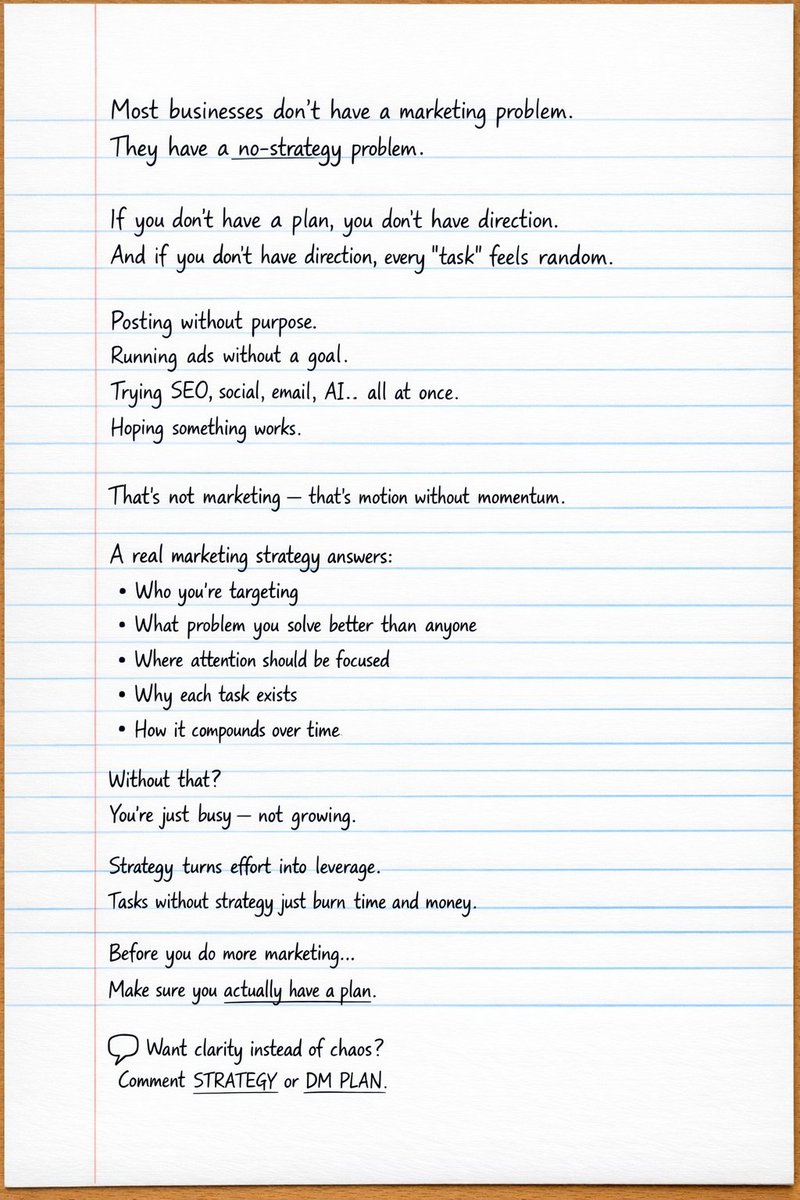 Most businesses don't have a marketing problem.
They have a no-strategy problem.
If you don't have a plan, you don't have direction.
And if you don't have direction, every "task" feels random.
Posting without purpose.
Running ads without a goal.
Trying SEO, social, email, AI.. all at once.
Hoping something works.
That's not marketing — that's motion without momentum.
A real marketing strategy answers:
• Who you're targeting
• What problem you solve better than anyone
• Where attention should be focused
• Why each task exists
• How it compounds over time
Without that?
You're just busy — not growing.
Strategy turns effort into leverage.
Tasks without strategy just burn time and money.
Before you do more marketing...
Make sure you actually have a plan.
Want clarity instead of chaos?
Comment STRATEGY or DM PLAN.